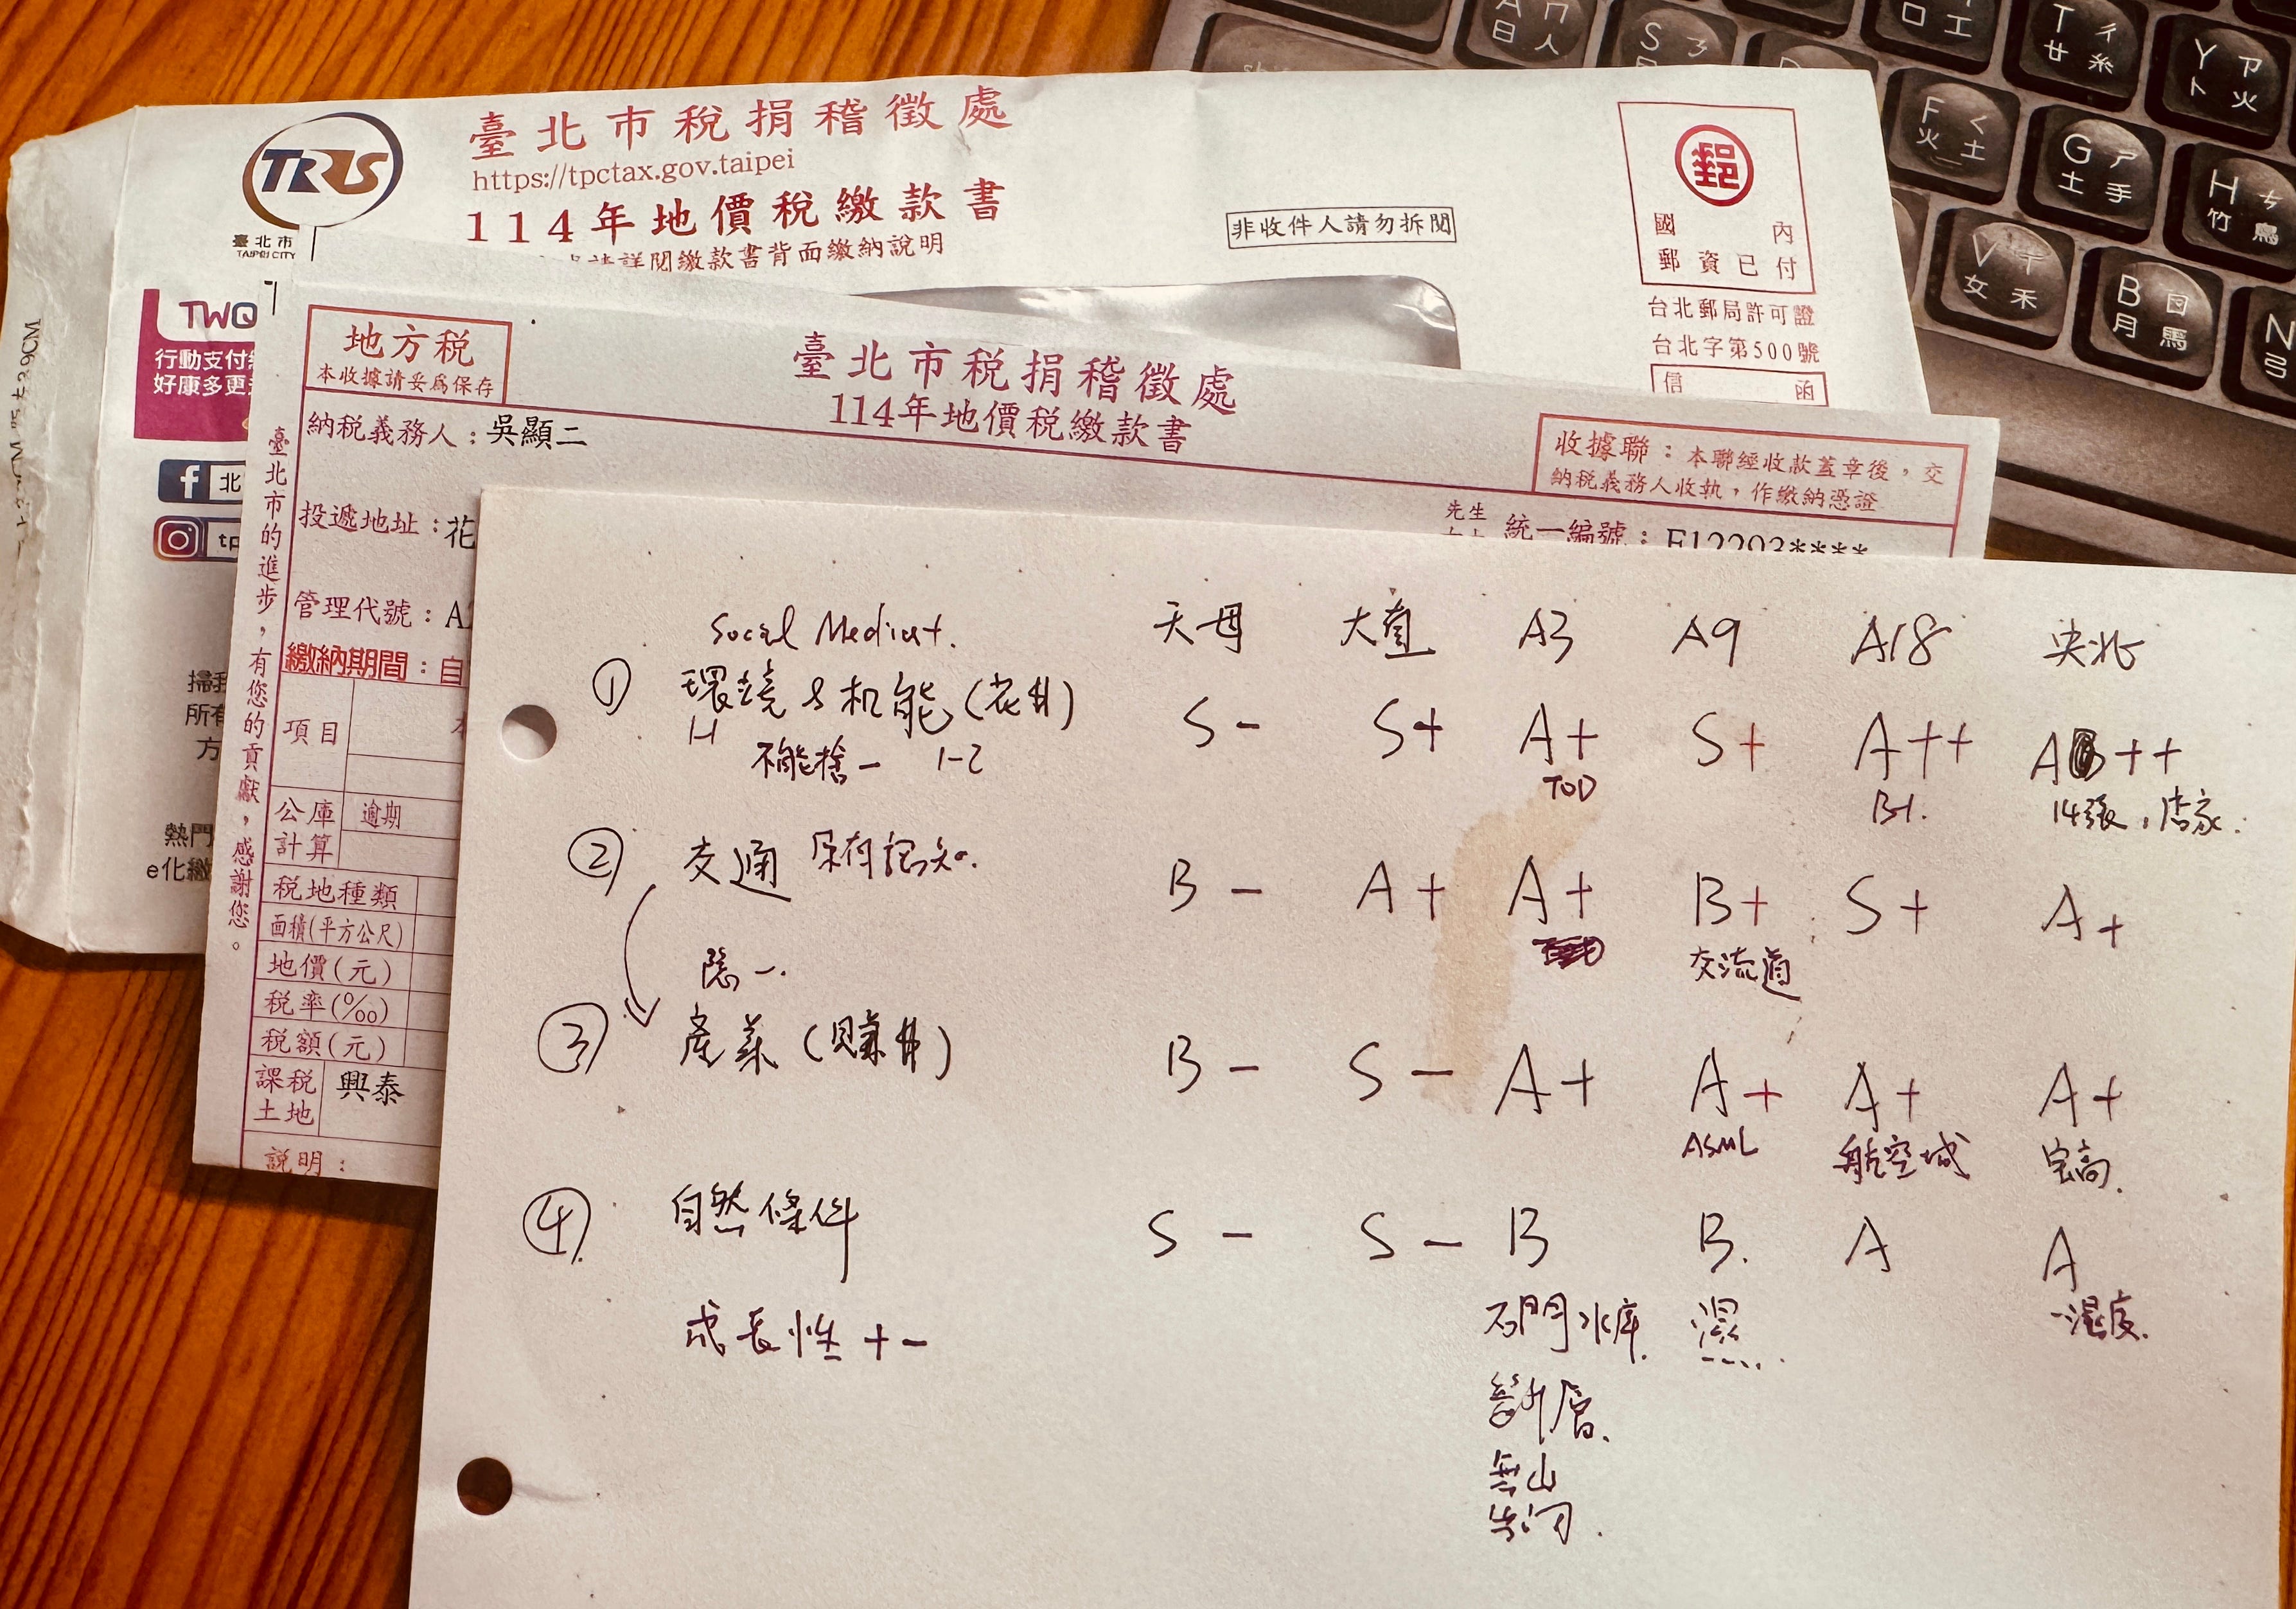 臺北市稅捐稽徵處
https://tpctax.gov.taipei
114年地價稅繳款書
請詳閱繳款書背面繳納說明
TRS
臺北市
TAIPEI CITY
非收件人請勿拆閱
郵
國內
郵資已付
台北郵局許可證
台北字第500號
信函
TWQ
行動支付
好康多更
f 北
tp
掃
所有
方
熱門
e化繳
臺北市的進步，有您的貢獻，感謝您。
地方稅
本收據請妥為保存
臺北市稅捐稽徵處
114年地價稅繳款書
收據聯：本聯經收款蓋章後，交
納稅義務人收執，作繳納憑證
納稅義務人：吳顯二
先生
投遞地址：花
統一編號：F12203****
管理代號：A
繳納期間：自
項目
公庫計算
逾期
稅地種類
面積(平方公尺)
地價(元)
稅率(‰)
稅額(元)
課稅土地
興泰
說明：
天母 大直 A3 A9 A18 央北
① 環境&机能(花$) S- S+ A+ S+ A++ A++
1-1 不能捨一 1-2 TOD B1. 14張,店家.
② 交通 保存認知. B- A+ A+ B+ S+ A+
隱一. 交流道
③ 產業(賺$) B- S- A+ A+ A+ A+
ASML 航空城 宏高.
④ 自然條件 S- S- B B. A A
成長性 +- 石門水庫. 濕 -濕度.
斷層.
無山